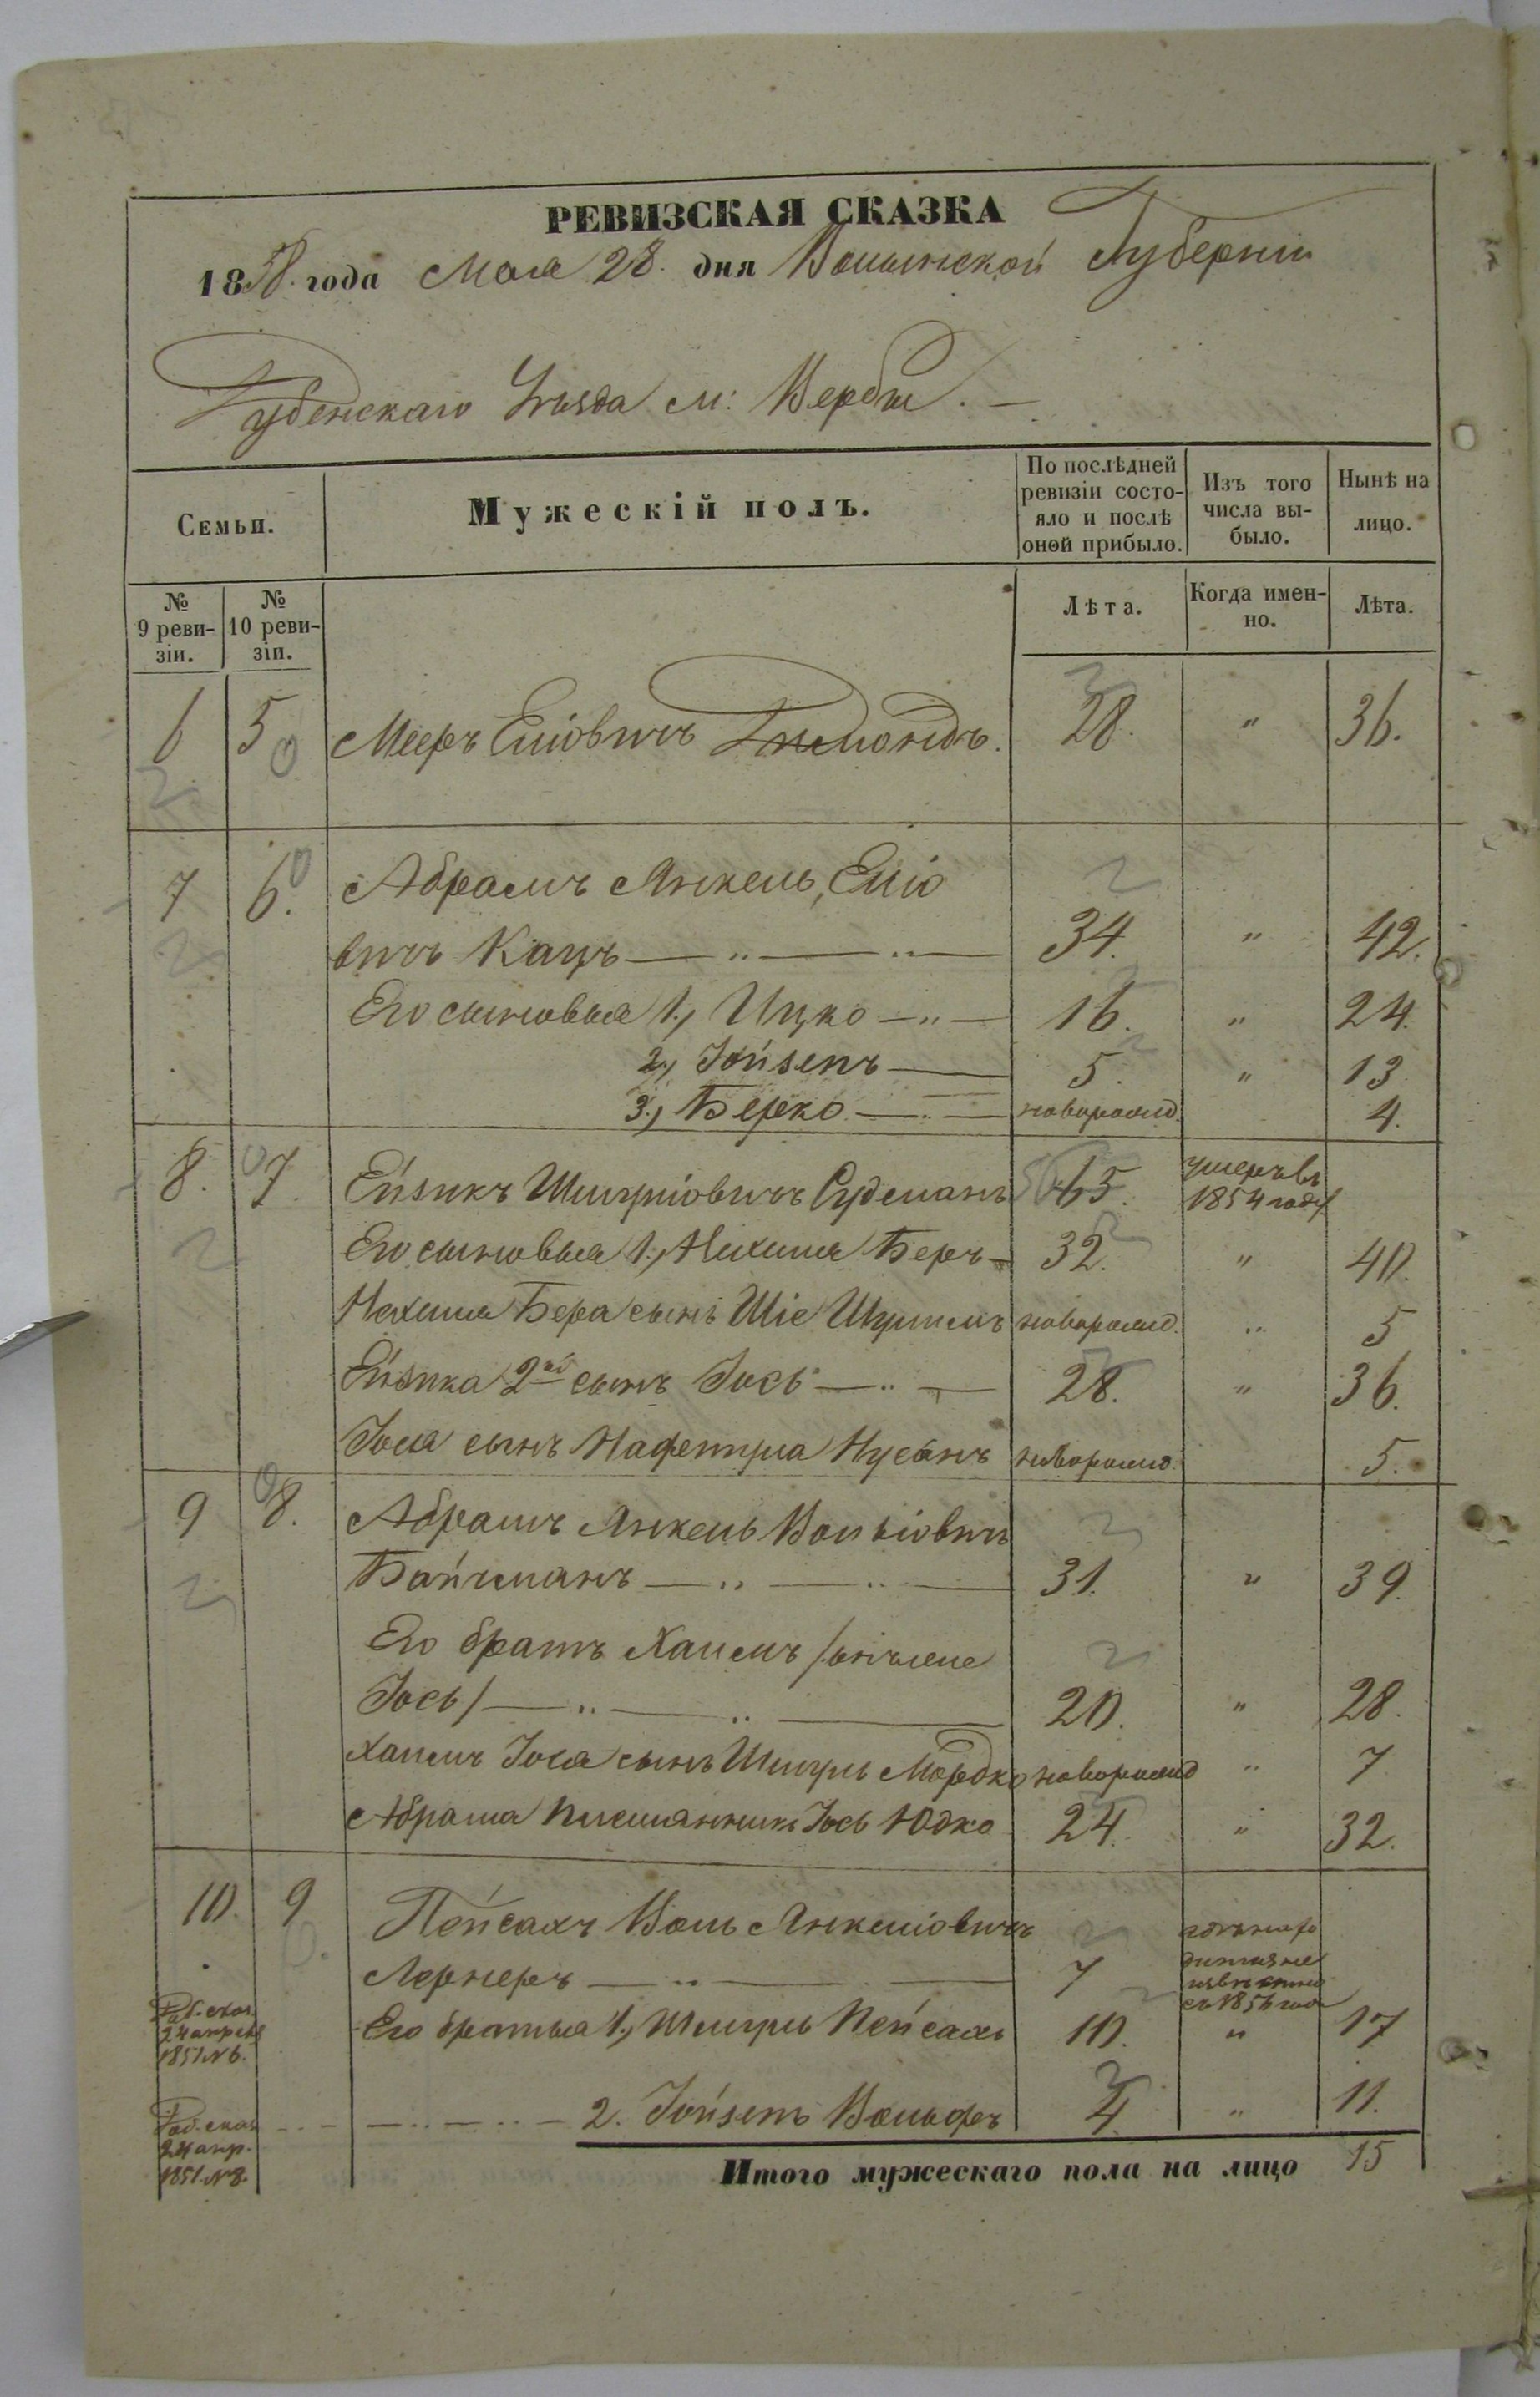 РЕВИЗСКАЯ СКАЗКА
1858. года Мая 28. дня Волынской Губерніи
Дубенскаго Уѣзда м: Вербы. —
Семьи.
Мужескій полъ.
По послѣдней ревизіи состояло и послѣ оной прибыло.
Изъ того числа выбыло.
Нынѣ на лицо.
№ 9 ревизіи.
№ 10 ревизіи.
Лѣта.
Когда именно.
Лѣта.
6 5 Мееръ Еліовичъ 28. " 36.
7 6. Абрамъ Янкель, Еліо
вичъ Кацъ — " — " — 34. " 42.
Его сыновья 1., Ицко — " — 16. " 24.
2., Іойзепъ — 5. " 13
3., Берко — " — новорожд. 4.
8. 7. Ейзикъ Шмуліовичъ Судманъ 65. умеръ въ
1854 году
Его сыновья 1., Нахима Беръ — 32. " 40.
Нахима Бера сынъ Шіе Шулимъ новорожд. " 5
Ейзика 2й сынъ Іось — " — 28. " 36.
Іося сынъ Нафетула Нусанъ новорожд. 5.
9 8. Абрамъ Янкель Вольковичъ
Бойчманъ — " — " — 31. " 39.
Его братъ Хаимъ
Іось/ — " — " — 20. " 28.
Хаимъ Іося сынъ Шмуль Мордко новорожд " 7
Абрама племянникъ Іось Юдко 24. " 32.
10. 9 Пейсахъ Воль Янкеліовичъ
Лернеръ — " — — 7
съ 1856 года
Его братья 1., Шмуль Пейсахъ 10. " 17
24 апреля
1851 N 6.
— " — " — 2. Іойзепъ Вольфъ 4. " 11.
24 апр.
1851 N 8.
Итого мужескаго пола на лицо 15